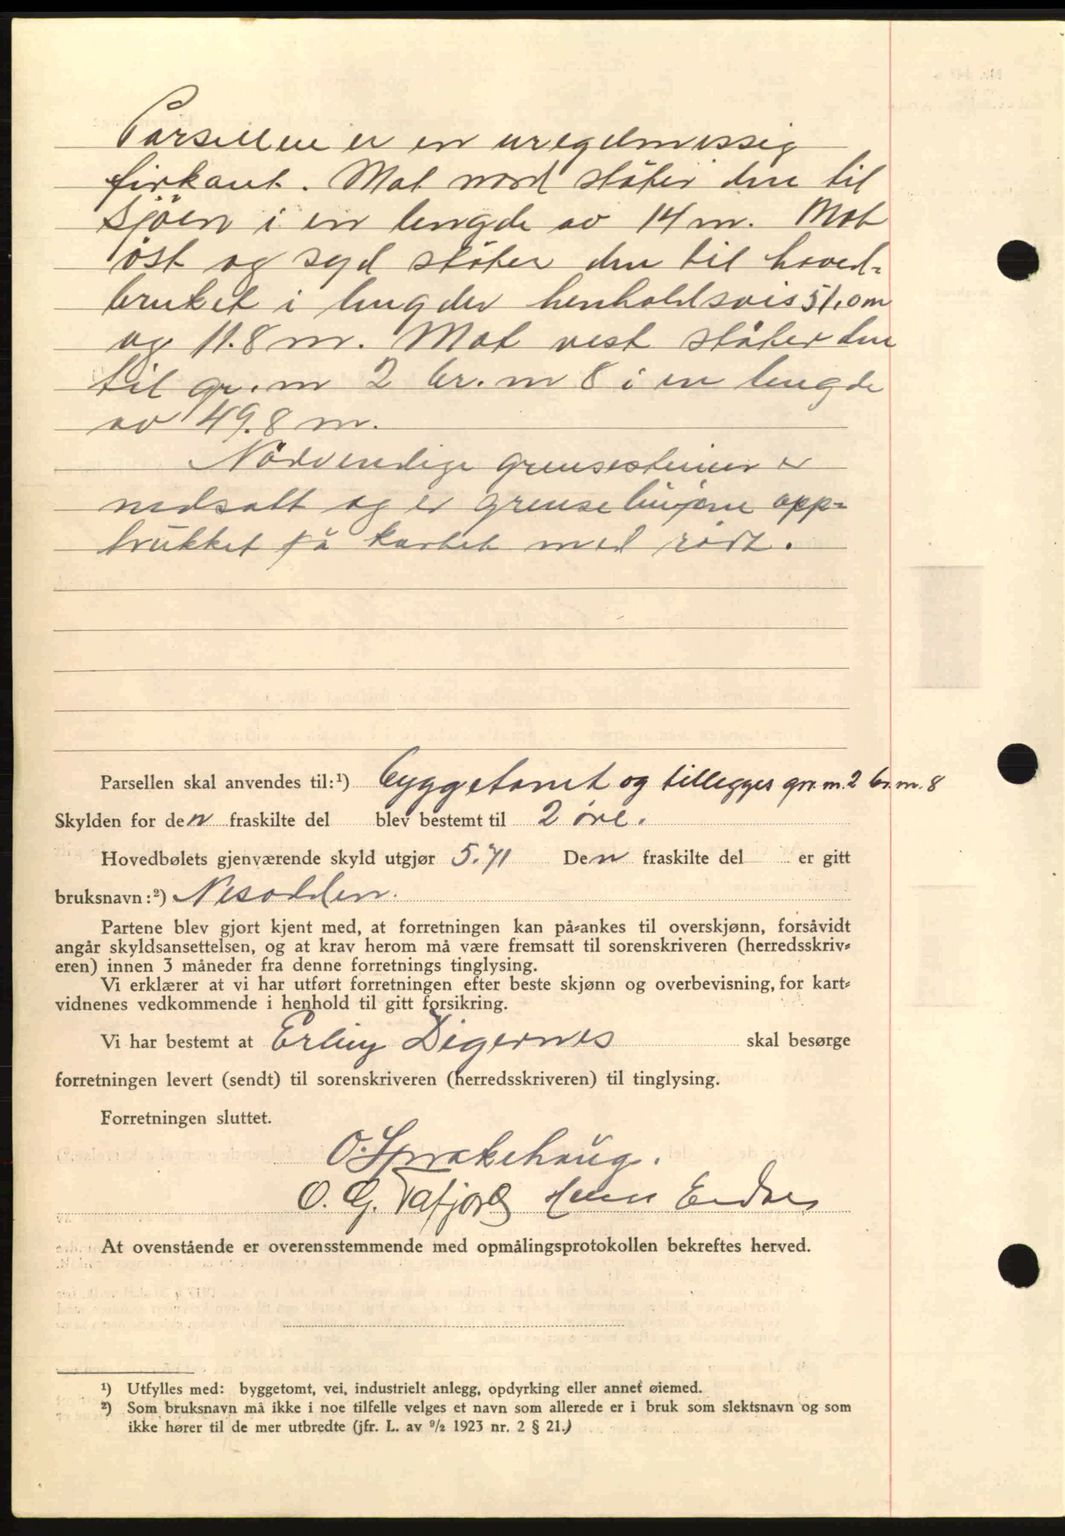 Parsellen er en uregelmessig
firkant. Mot nord støter den til
sjøen i en lengde av 14 m. Mot
øst og syd støter den til hoved-
bruket i lengder henholdsvis 51.0 m
og 11.8 m. Mot vest støter den
til gr. nr 2 br. nr 8 i en lengde
av 49.8 m.
Nødvendige grensesteiner er
nedsatt og er grenselinjene opp-
trukket på kartet med rødt.
Parsellen skal anvendes til:¹) byggetomt og tillegges gr. nr. 2 br. nr. 8
Skylden for den fraskilte del blev bestemt til 2 øre.
Hovedbølets gjenværende skyld utgjør 5.71 Den fraskilte del er gitt
bruksnavn:²) Nesodden.
Partene blev gjort kjent med, at forretningen kan på-ankes til overskjønn, forsåvidt
angår skyldsansettelsen, og at krav herom må være fremsatt til sorenskriveren (herredsskriv-
eren) innen 3 måneder fra denne forretnings tinglysing.
Vi erklærer at vi har utført forretningen efter beste skjønn og overbevisning, for kart-
vidnenes vedkommende i henhold til gitt forsikring.
Vi har bestemt at Erling Digernes skal besørge
forretningen levert (sendt) til sorenskriveren (herredsskriveren) til tinglysing.
Forretningen sluttet.
O. Sprakehaug.
O. G. Tafjord
At ovenstående er overensstemmende med opmålingsprotokollen bekreftes herved.
¹) Utfylles med: byggetomt, vei, industrielt anlegg, opdyrking eller annet øiemed.
²) Som bruksnavn må ikke i noe tilfelle velges et navn som allerede er i bruk som slektsnavn og som
ikke hører til de mer utbredte (jfr. L. av ⁹/₂ 1923 nr. 2 § 21.)